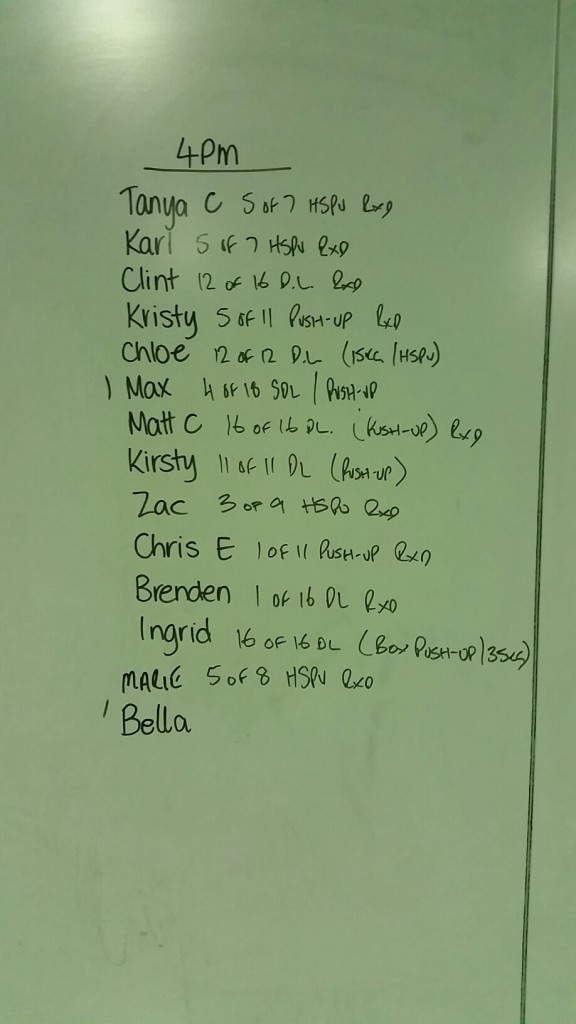 4pm
Tanya C 5 of 7 HSPU Rxd
Karl 5 of 7 HSPU Rxd
Clint 12 of 16 D.L. Rxd
Kristy 5 of 11 Push-up Rxd
Chloe 12 of 12 D.L (15kg / HSPU)
) Max 4 of 18 SDL / Push-up
Matt C 16 of 16 DL. (Push-up) Rxd
Kirsty 11 of 11 DL (Push-up)
Zac 3 of 9 HSPU Rxd
Chris E 1 of 11 Push-up Rxd
Brenden 1 of 16 DL Rxd
Ingrid 16 of 16 DL (Box Push-up / 35kg)
MARIE 5 of 8 HSPU Rxd
/ Bella